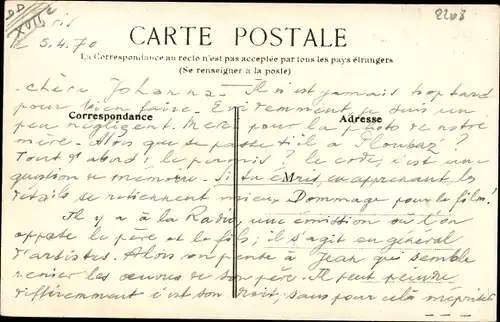 DD
XVIIe
Paris
le 5.4.70
2208
CARTE POSTALE
La Correspondance au recto n'est pas acceptée par tous les pays étrangers
(Se renseigner à la poste)
Correspondance
Adresse
M
chère Johanna - Il n'est jamais trop tard
pour bien faire. Evidemment, je suis un
peu négligent. Merci pour la photo de notre
mère. Alors que se passe-t-il à
Tout d'abord : le permis ? le code, c'est une
question de mémoire. Si tu écris, en apprenant les
détails se retiennent mieux. Dommage pour le film !
Il y a à la Radio, une émission où l'on
appelle le père et le fils ; il s'agit en général
d'artistes. Alors on pense à Jean qui semble
renier les œuvres de son père. Il peut peindre
différemment c'est son droit, sans pour cela mépriser